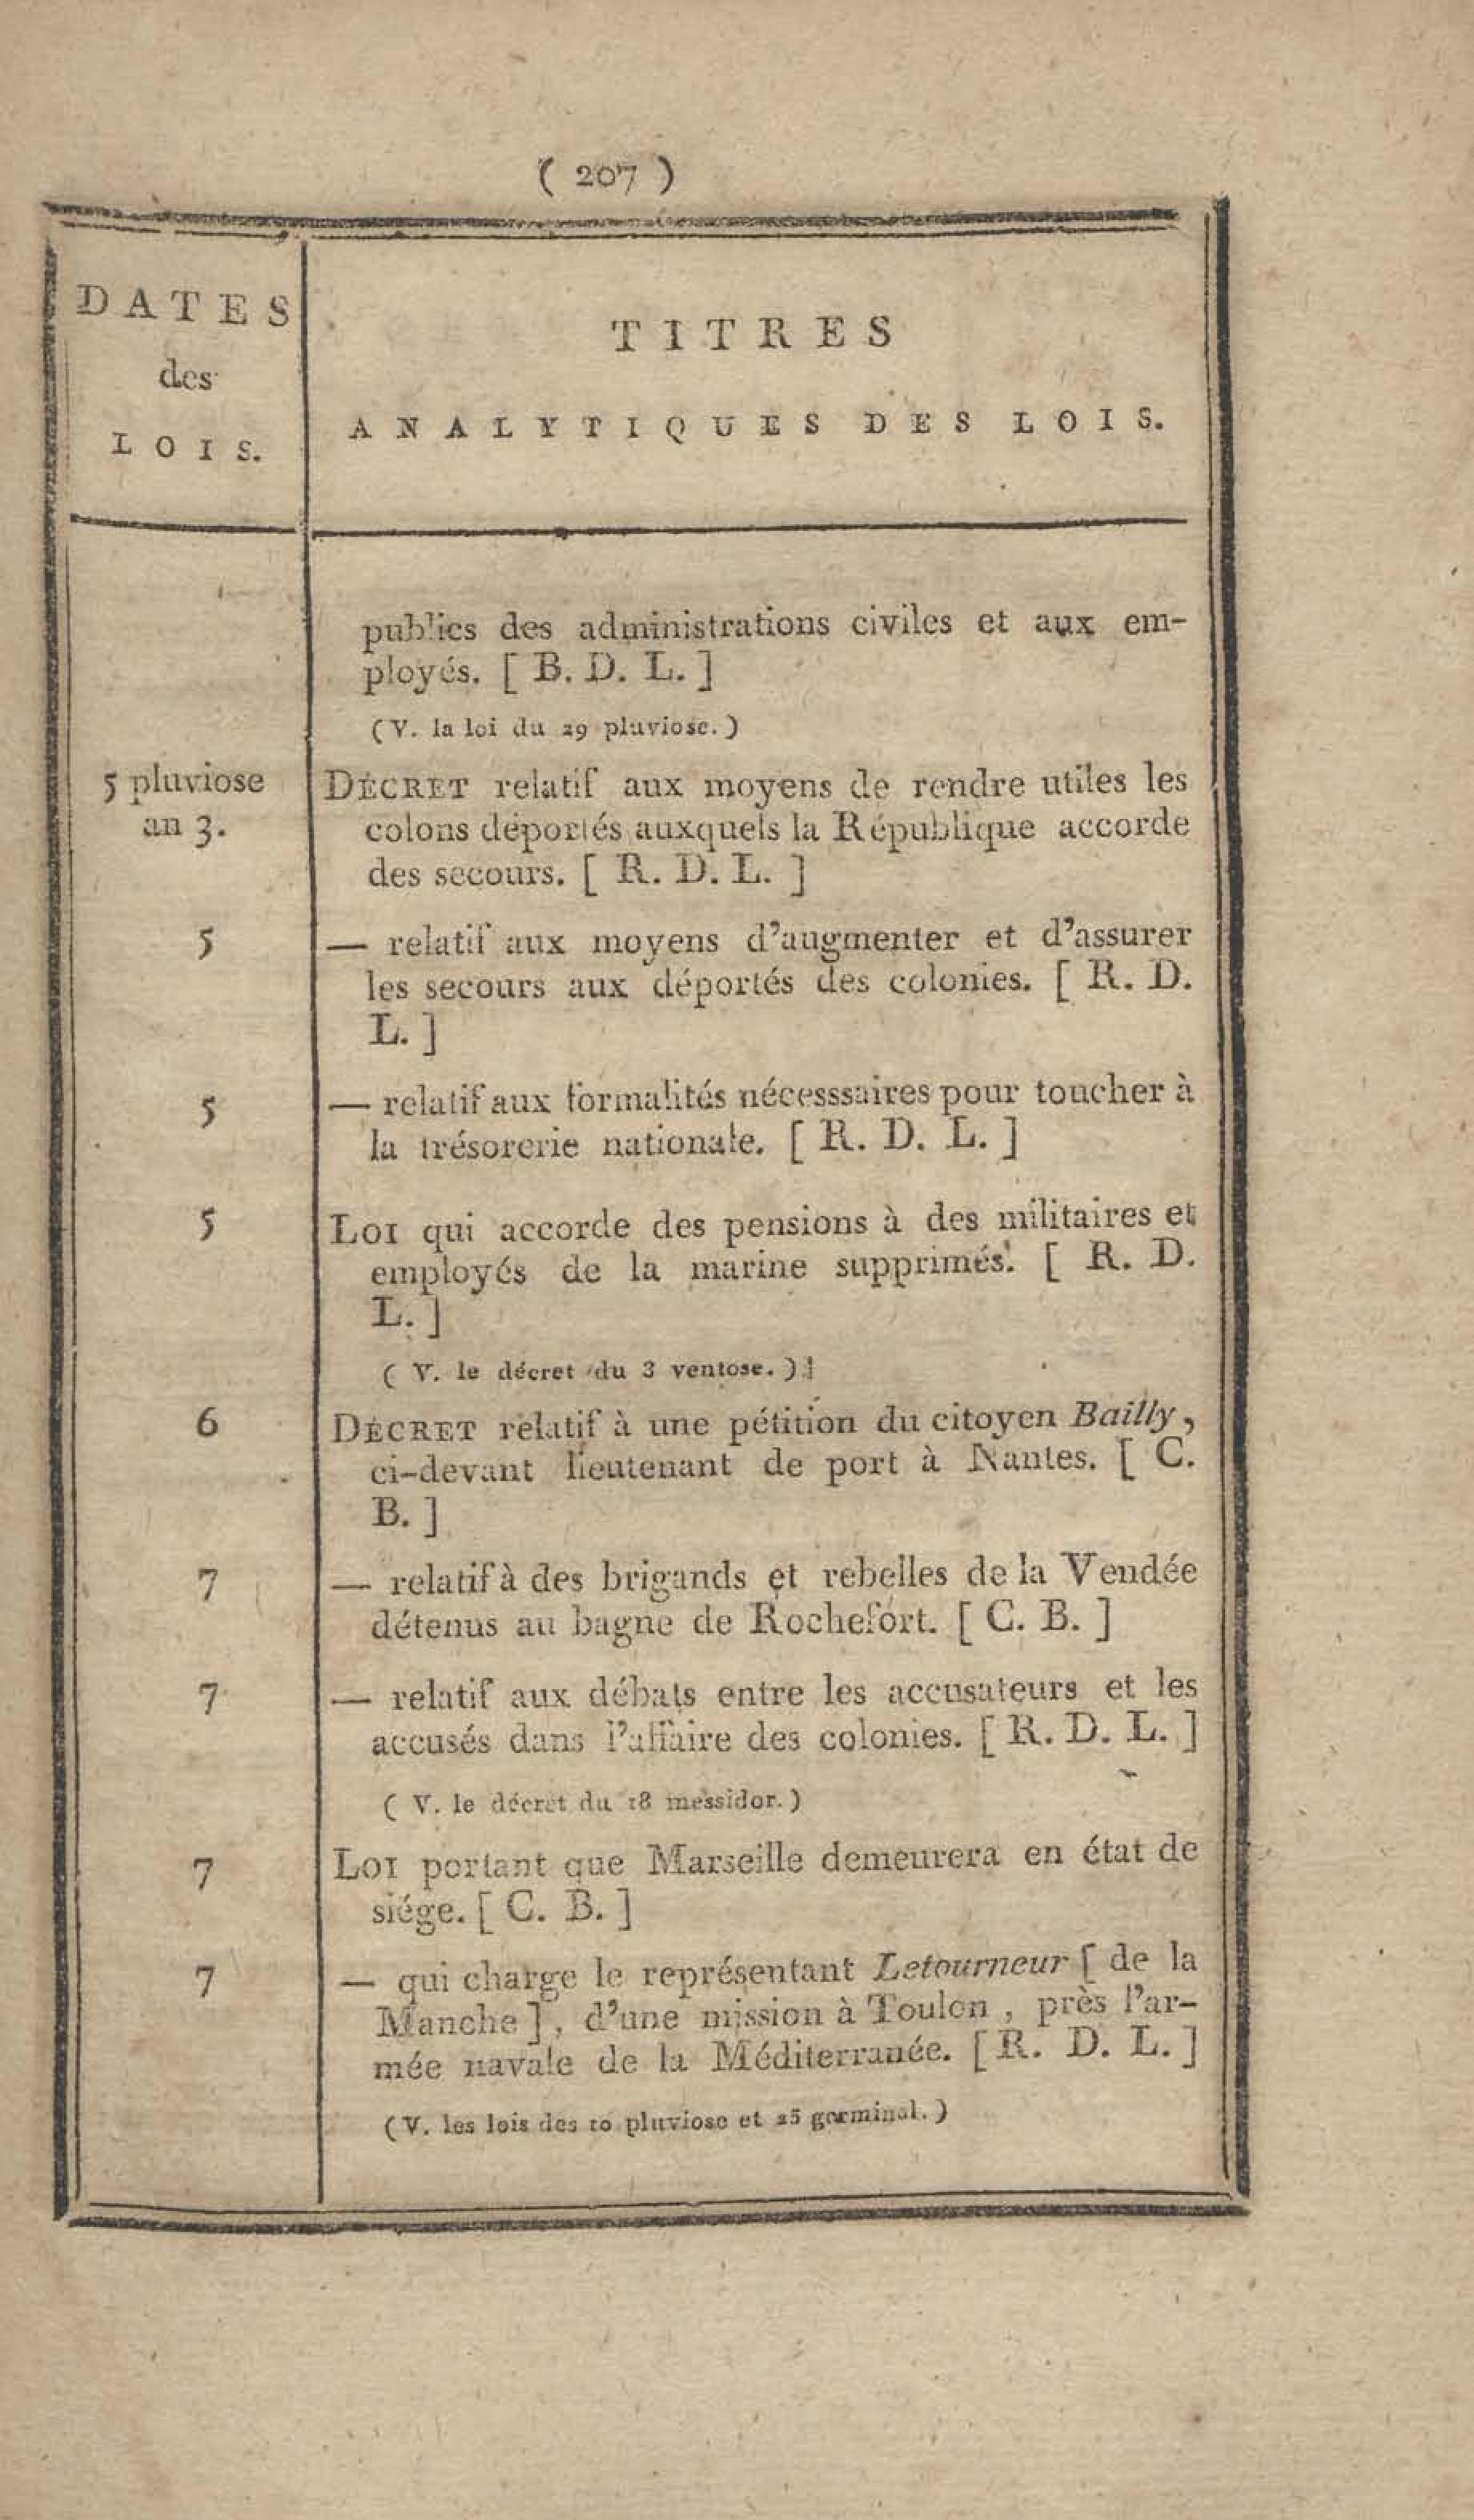 ( 207 )
DATES
des
LOIS.
TITRES
ANALYTIQUES DES LOIS.
publics des administrations civiles et aux em-
ployés. [ B. D. L. ]
(V. la loi du 29 pluviose.)
5 pluviose DÉCRET relatif aux moyens de rendre utiles les
an 3. colons déportés auxquels la République accorde
des secours. [ R. D. L. ]
5 — relatif aux moyens d'augmenter et d'assurer
les secours aux déportés des colonies. [ R. D.
L. ]
5 — relatif aux formalités nécesssaires pour toucher à
la trésorerie nationale. [ R. D. L. ]
5 LOI qui accorde des pensions à des militaires et
employés de la marine supprimés. [ R. D.
L. ]
( V. le décret du 3 ventose. )
6 DÉCRET relatif à une pétition du citoyen Bailly,
ci-devant lieutenant de port à Nantes. [ C.
B. ]
7 — relatif à des brigands et rebelles de la Vendée
détenus au bagne de Rochefort. [ C. B. ]
7 — relatif aux débats entre les accusateurs et les
accusés dans l'affaire des colonies. [ R. D. L. ]
( V. le décret du 18 messidor. )
7 LOI portant que Marseille demeurera en état de
siége. [ C. B. ]
7 — qui charge le représentant Letourneur [ de la
Manche ], d'une mission à Toulon, près l'ar-
mée navale de la Méditerranée. [ R. D. L. ]
(V. les lois des 10 pluviose et 25 germinal.)